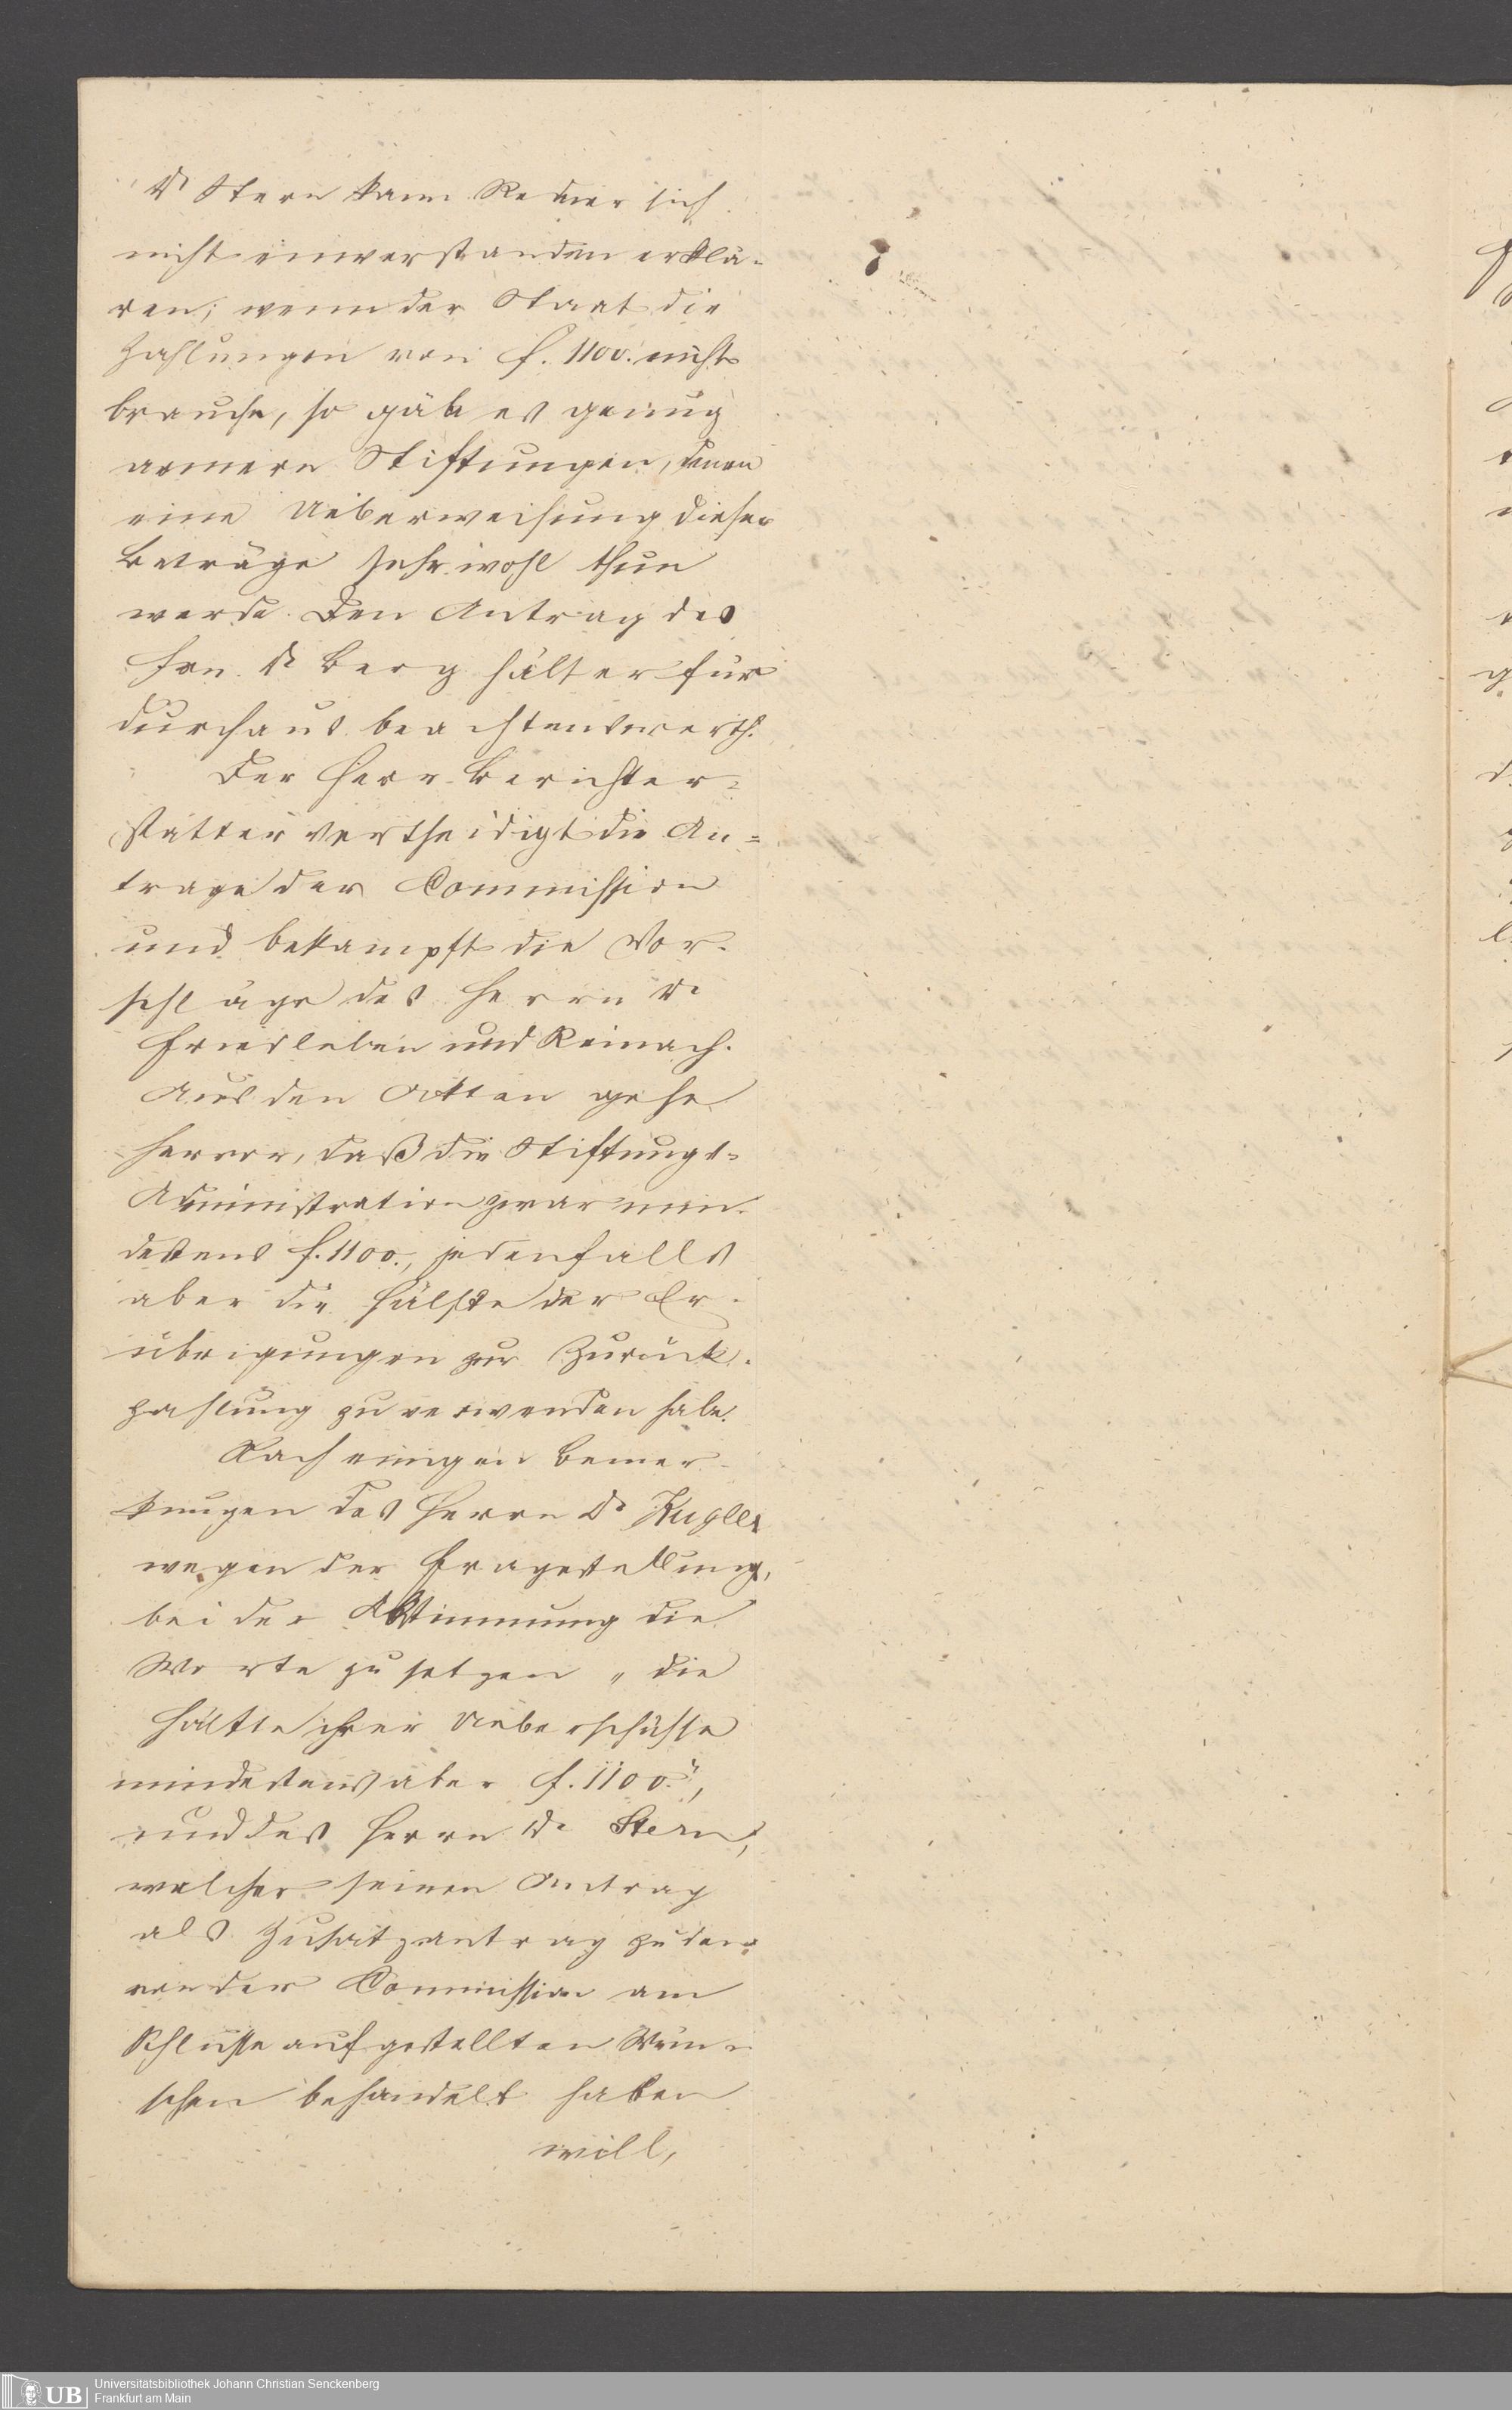 Dr Stern kann Redner sich
nicht einverstanden erklä-
ren; wenn der Staat die
Zahlungen von f. 1100. nicht
brauche, so gäbe es genug
armere Stiftungen, denen
eine Ueberweisung dieser
Beträge sehr wohl thun
werde. Den Antrag des
Hrn. Dr Berg hält er für
durchaus beachtenswerth.
Der Herr Berichter-
statter vertheidigt die An=
trage der Commission
und bekämpft die Vor-
schläge des Herrn Dr
Friedleben und Reinach.
Aus den Akten gehe
hervor, daß die Stiftungs-
Administration zwar min-
destens f. 1100., jedenfalls
aber die Hälfte der Er-
übrigungen zur Zurück-
zahlung zu verwenden habe.
Nach einigen Bemer-
kungen des Herrn Dr Kugler
wegen der Fragestellung,
bei der Abstimmung die
Worte zu setzen „die
Hälfte ihrer Ueberschüsse
mindestens aber f. 1100.",
und des Herrn Dr Stern,
welcher seinen Antrag
als Zusatzantrag zu den
von der Commission am
Schlusse aufgestellten Wün-
schen behandelt haben
will,
UB
Universitätsbibliothek Johann Christian Senckenberg
Frankfurt am Main